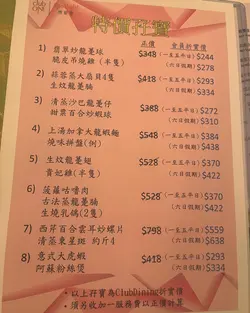 特價孖寶
正價 會員折實價
1) 翡翠炒龍躉球 $348 (一至五平日) $244
脆皮吊燒雞(半隻) (六日假期) $278
2) 蒜蓉蒸大扇貝4隻 $418 (一至五平日) $293
生炆龍躉腩 (六日假期) $334
3) 清蒸沙巴龍躉仔 $388 (一至五平日) $272
甜栗百合炒蝦球 (六日假期) $310
4) 上湯加拿大龍蝦麵 $548 (一至五平日) $384
燒味拼盤(例) (六日假期) $438
5) 生炆龍躉翅 $528 (一至五平日) $370
貴妃雞(半隻) (六日假期) $422
6) 菠蘿咕嚕肉 $528 (一至五平日) $370
古法蒸龍躉腩 (六日假期) $422
生燒乳鴿(2隻)
7) 西芹百合雲耳炒螺片 $798 (一至五平日) $559
清蒸東星斑 約斤4 (六日假期) $638
8) 意式大虎蝦 $418 (一至五平日) $293
阿蘇粉絲煲 (六日假期) $334
•以上孖寶為ClubDining折實價
•須另收加一服務費以正價計算